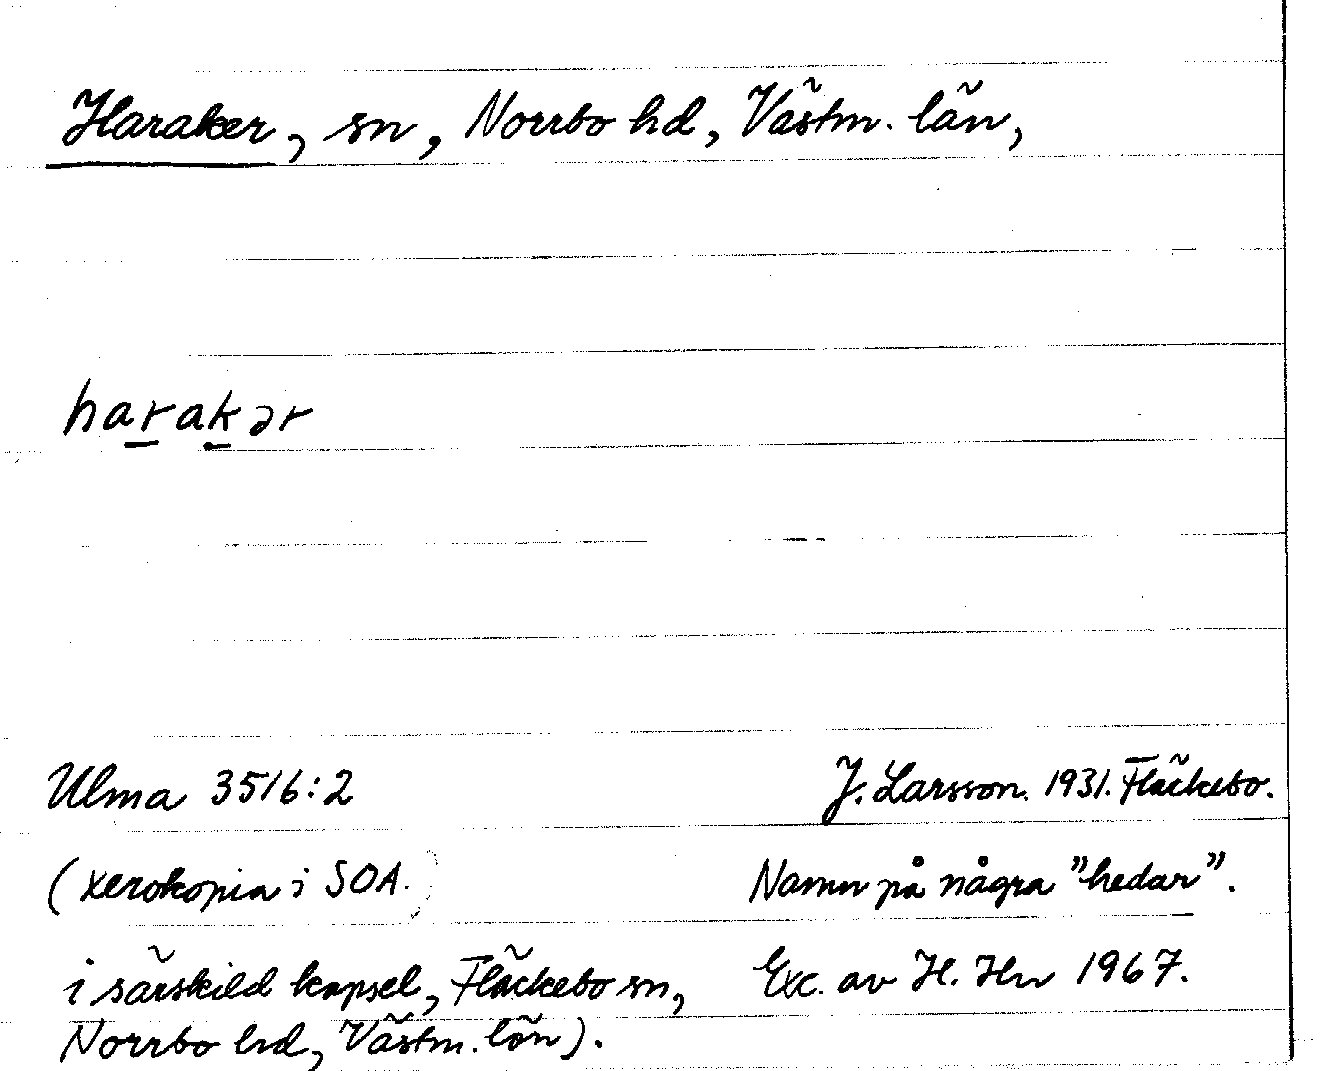 Haraker, sn, Norrbo hd, Västm. län,
harakər
Ulma 3516:2
J. Larsson. 1931. Fläckebo.
(xerokopia i SOA.)
Namn på några "hedar".
i särskild kapsel, Fläckebo sn,
Exc. av H. Hn 1967.
Norrbo hd, Västm. län).